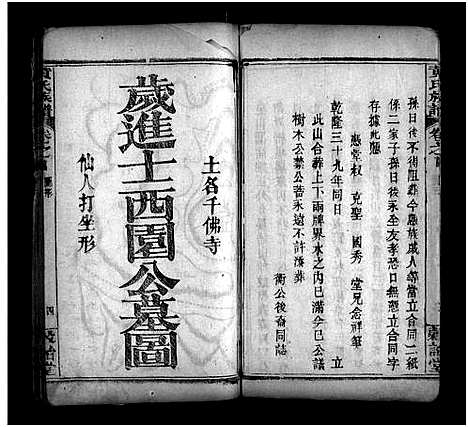 孫日後不得翻悔今愚族咸人等立合同二紙
係二家子孫日後永至友孝恐口無憑立合同字
存照據
愚堂叔 克聖 國秀 堂兄念祥筆
乾隆三十九年同日 立
此山合葬上下兩牌界水之内已滿今巳公議
樹木公禁公蓄永遠不許濫葬
衡公後裔同誌
土名千佛寺
歲進士西園公墓圖
仙人打坐形
黄氏族譜
卷之
四